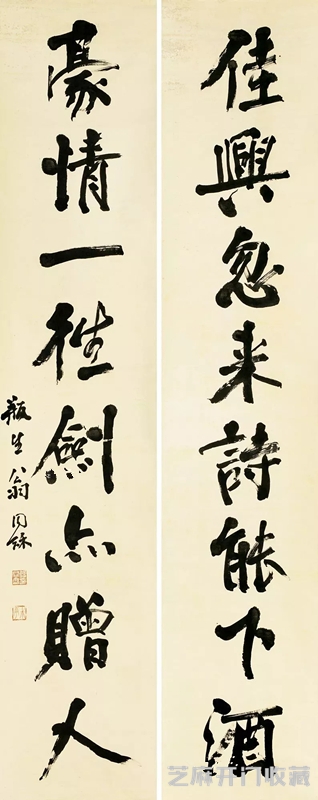 佳興忽来詩能下酒
豪情一往劍亦贈人
瓶生翁同龢
芝麻开门收藏